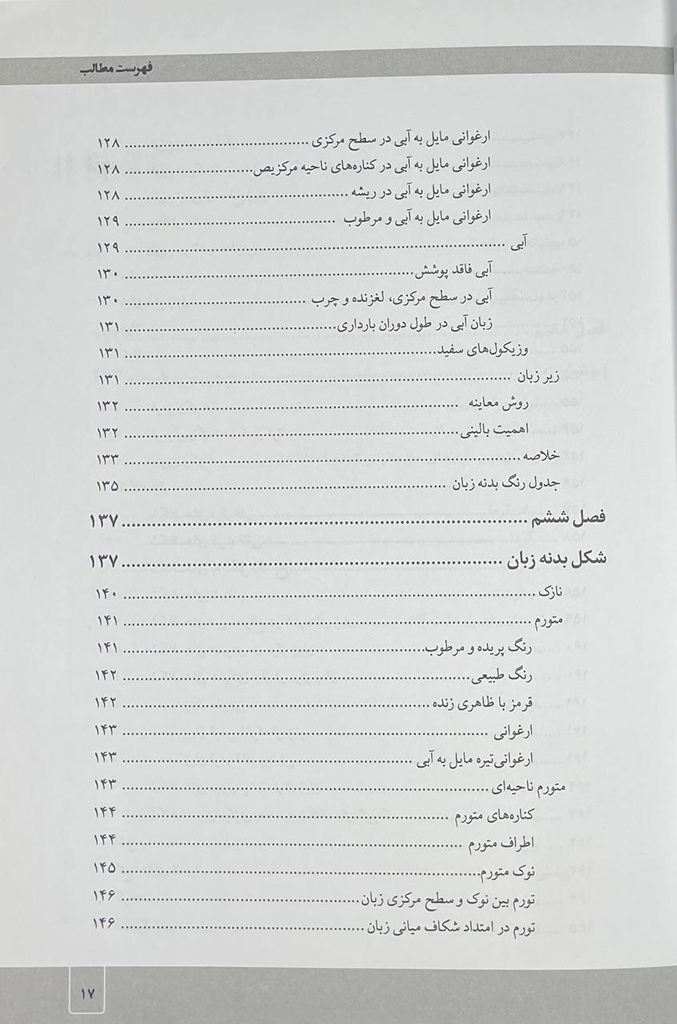 فهرست مطالب
ارغوانی مایل به آبی در سطح مرکزی ........ ۱۲۸
ارغوانی مایل به آبی در کناره‌های ناحیه مرکزیص ........ ۱۲۸
ارغوانی مایل به آبی در ریشه ........ ۱۲۸
ارغوانی مایل به آبی و مرطوب ........ ۱۲۹
آبی ........ ۱۲۹
آبی فاقد پوشش ........ ۱۳۰
آبی در سطح مرکزی، لغزنده و چرب ........ ۱۳۰
زبان آبی در طول دوران بارداری ........ ۱۳۱
وزیکول‌های سفید ........ ۱۳۱
زیر زبان ........ ۱۳۱
روش معاینه ........ ۱۳۲
اهمیت بالینی ........ ۱۳۲
خلاصه ........ ۱۳۳
جدول رنگ بدنه زبان ........ ۱۳۵
فصل ششم ........ ۱۳۷
شکل بدنه زبان ........ ۱۳۷
نازک ........ ۱۴۰
متورم ........ ۱۴۱
رنگ پریده و مرطوب ........ ۱۴۱
رنگ طبیعی ........ ۱۴۲
قرمز با ظاهری زنده ........ ۱۴۲
ارغوانی ........ ۱۴۳
ارغوانی‌تیره مایل به آبی ........ ۱۴۳
متورم ناحیه‌ای ........ ۱۴۳
کناره‌های متورم ........ ۱۴۴
اطراف متورم ........ ۱۴۴
نوک متورم ........ ۱۴۵
تورم بین نوک و سطح مرکزی زبان ........ ۱۴۶
تورم در امتداد شکاف میانی زبان ........ ۱۴۶
۱۷